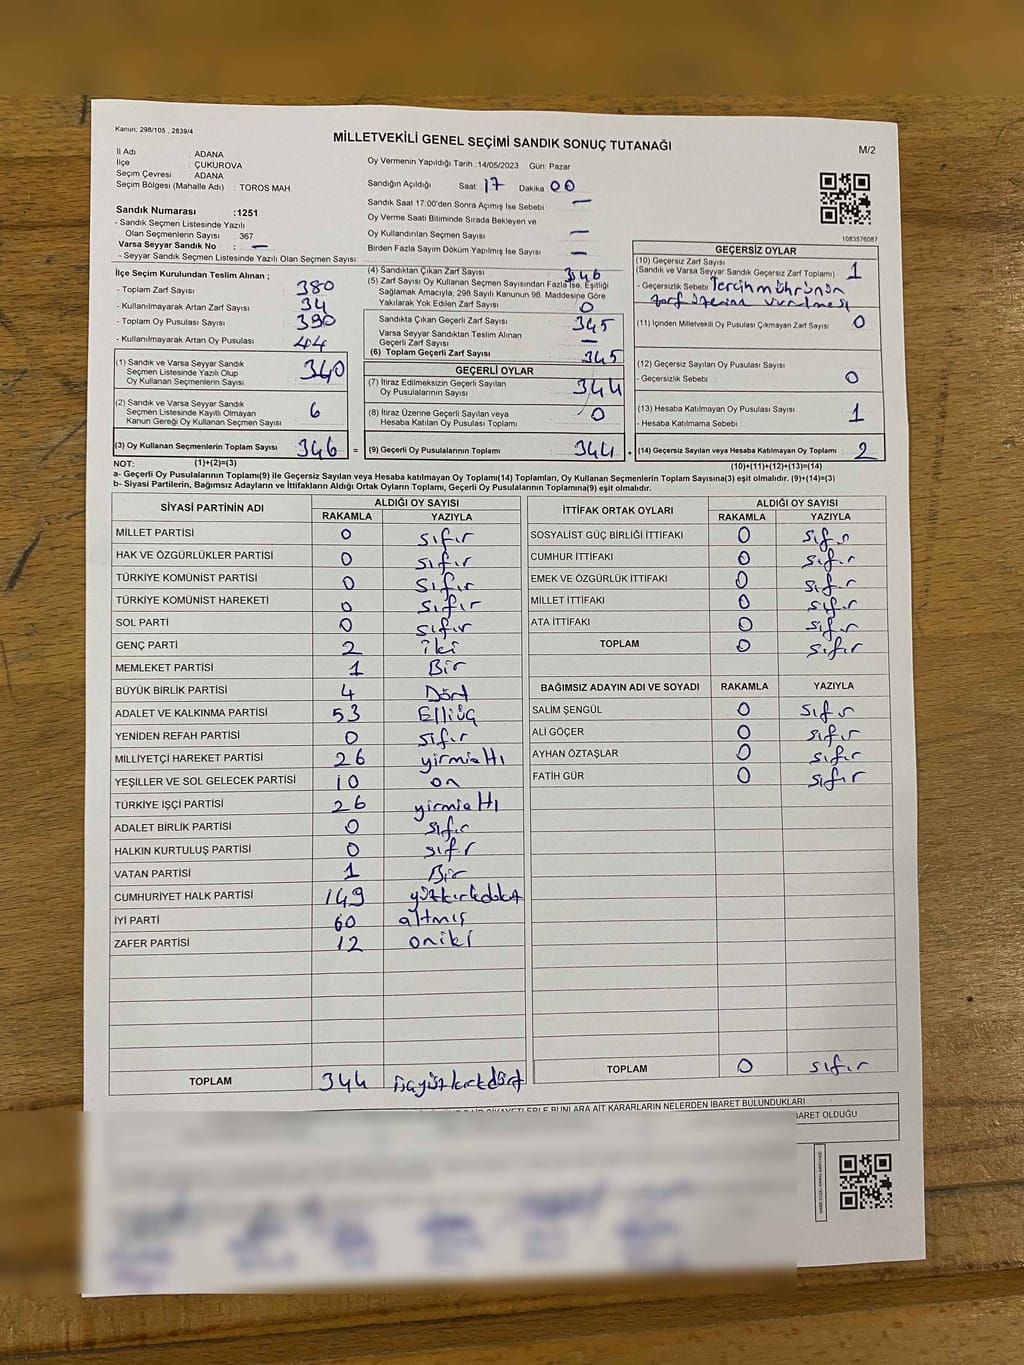 Kanun; 298/105 , 2839/4
MİLLETVEKİLİ GENEL SEÇİMİ SANDIK SONUÇ TUTANAĞI
M/2
İl Adı : ADANA
İlçe : ÇUKUROVA
Seçim Çevresi : ADANA
Seçim Bölgesi (Mahalle Adı) : TOROS MAH.
Sandık Numarası :1251
- Sandık Seçmen Listesinde Yazılı
Olan Seçmenlerin Sayısı : 367
Varsa Seyyar Sandık No : —
- Seyyar Sandık Seçmen Listesinde Yazılı Olan Seçmen Sayısı:
Oy Vermenin Yapıldığı Tarih :14/05/2023 Gün: Pazar
Sandığın Açıldığı Saat: 17 Dakika: 00
Sandık Saat 17:00'den Sonra Açılmış İse Sebebi : —
Oy Verme Saati Bitiminde Sırada Bekleyen ve
Oy Kullandırılan Seçmen Sayısı : —
Birden Fazla Sayım Döküm Yapılmış İse Sayısı : —
1083576087
İlçe Seçim Kurulundan Teslim Alınan ;
- Toplam Zarf Sayısı : 380
- Kullanılmayarak Artan Zarf Sayısı : 34
- Toplam Oy Pusulası Sayısı : 390
- Kullanılmayarak Artan Oy Pusulası : 44
(1) Sandık ve Varsa Seyyar Sandık
Seçmen Listesinde Yazılı Olup
Oy Kullanan Seçmenlerin Sayısı : 340
(2) Sandık ve Varsa Seyyar Sandık
Seçmen Listesinde Kayıtlı Olmayan
Kanun Gereği Oy Kullanan Seçmen Sayısı : 6
(3) Oy Kullanan Seçmenlerin Toplam Sayısı : 346 =
(4) Sandıktan Çıkan Zarf Sayısı : 346
(5) Zarf Sayısı Oy Kullanan Seçmen Sayısından Fazla İse, Eşitliği
Sağlamak Amacıyla, 298 Sayılı Kanunun 98. Maddesine Göre
Yakılarak Yok Edilen Zarf Sayısı : 0
Sandıkta Çıkan Geçerli Zarf Sayısı : 345
Varsa Seyyar Sandıktan Teslim Alınan
Geçerli Zarf Sayısı : —
(6) Toplam Geçerli Zarf Sayısı : 345
GEÇERLİ OYLAR
(7) İtiraz Edilmeksizin Geçerli Sayılan
Oy Pusulalarının Sayısı : 344
(8) İtiraz Üzerine Geçerli Sayılan veya
Hesaba Katılan Oy Pusulası Toplamı : 0
(9) Geçerli Oy Pusulalarının Toplamı : 344 +
GEÇERSİZ OYLAR
(10) Geçersiz Zarf Sayısı
(Sandık ve Varsa Seyyar Sandık Geçersiz Zarf Toplamı) : 1
- Geçersizlik Sebebi : Tercih mührünün
zarf üzerine vurulması
(11) İçinden Milletvekili Oy Pusulası Çıkmayan Zarf Sayısı : 0
(12) Geçersiz Sayılan Oy Pusulası Sayısı :
- Geçersizlik Sebebi : 0
(13) Hesaba Katılmayan Oy Pusulası Sayısı : 1
- Hesaba Katılmama Sebebi :
(14) Geçersiz Sayılan veya Hesaba Katılmayan Oy Toplamı : 2
NOT: (1)+(2)=(3)
(10)+(11)+(12)+(13)=(14)
a- Geçerli Oy Pusulalarının Toplamı(9) ile Geçersiz Sayılan veya Hesaba katılmayan Oy Toplamı(14) Toplamları, Oy Kullanan Seçmenlerin Toplam Sayısına(3) eşit olmalıdır. (9)+(14)=(3)
b- Siyasi Partilerin, Bağımsız Adayların ve İttifakların Aldığı Ortak Oyların Toplamı, Geçerli Oy Pusulalarının Toplamına(9) eşit olmalıdır.
SİYASİ PARTİNİN ADI ALDIĞI OY SAYISI
RAKAMLA YAZIYLA
MİLLET PARTİSİ 0 sıfır
HAK VE ÖZGÜRLÜKLER PARTİSİ 0 sıfır
TÜRKİYE KOMÜNİST PARTİSİ 0 sıfır
TÜRKİYE KOMÜNİST HAREKETİ 0 sıfır
SOL PARTİ 0 sıfır
GENÇ PARTİ 2 iki
MEMLEKET PARTİSİ 1 Bir
BÜYÜK BİRLİK PARTİSİ 4 Dört
ADALET VE KALKINMA PARTİSİ 53 Elliüç
YENİDEN REFAH PARTİSİ 0 sıfır
MİLLİYETÇİ HAREKET PARTİSİ 26 yirmialtı
YEŞİLLER VE SOL GELECEK PARTİSİ 10 on
TÜRKİYE İŞÇİ PARTİSİ 26 yirmialtı
ADALET BİRLİK PARTİSİ 0 sıfır
HALKIN KURTULUŞ PARTİSİ 0 sıfır
VATAN PARTİSİ 1 Bir
CUMHURİYET HALK PARTİSİ 149 yüzkırkdokuz
İYİ PARTİ 60 altmış
ZAFER PARTİSİ 12 oniki
TOPLAM 344 üçyüzkırkdört
İTTİFAK ORTAK OYLARI ALDIĞI OY SAYISI
RAKAMLA YAZIYLA
SOSYALİST GÜÇ BİRLİĞİ İTTİFAKI 0 sıfır
CUMHUR İTTİFAKI 0 sıfır
EMEK VE ÖZGÜRLÜK İTTİFAKI 0 sıfır
MİLLET İTTİFAKI 0 sıfır
ATA İTTİFAKI 0 sıfır
TOPLAM 0 sıfır
BAĞIMSIZ ADAYIN ADI VE SOYADI RAKAMLA YAZIYLA
SALİM ŞENGÜL 0 sıfır
ALİ GÖÇER 0 sıfır
AYHAN ÖZTAŞLAR 0 sıfır
FATİH GÜR 0 sıfır
TOPLAM 0 sıfır
BUNLARA AİT KARARLARIN NELERDEN İBARET BULUNDUKLARI
İBARET OLDUĞU